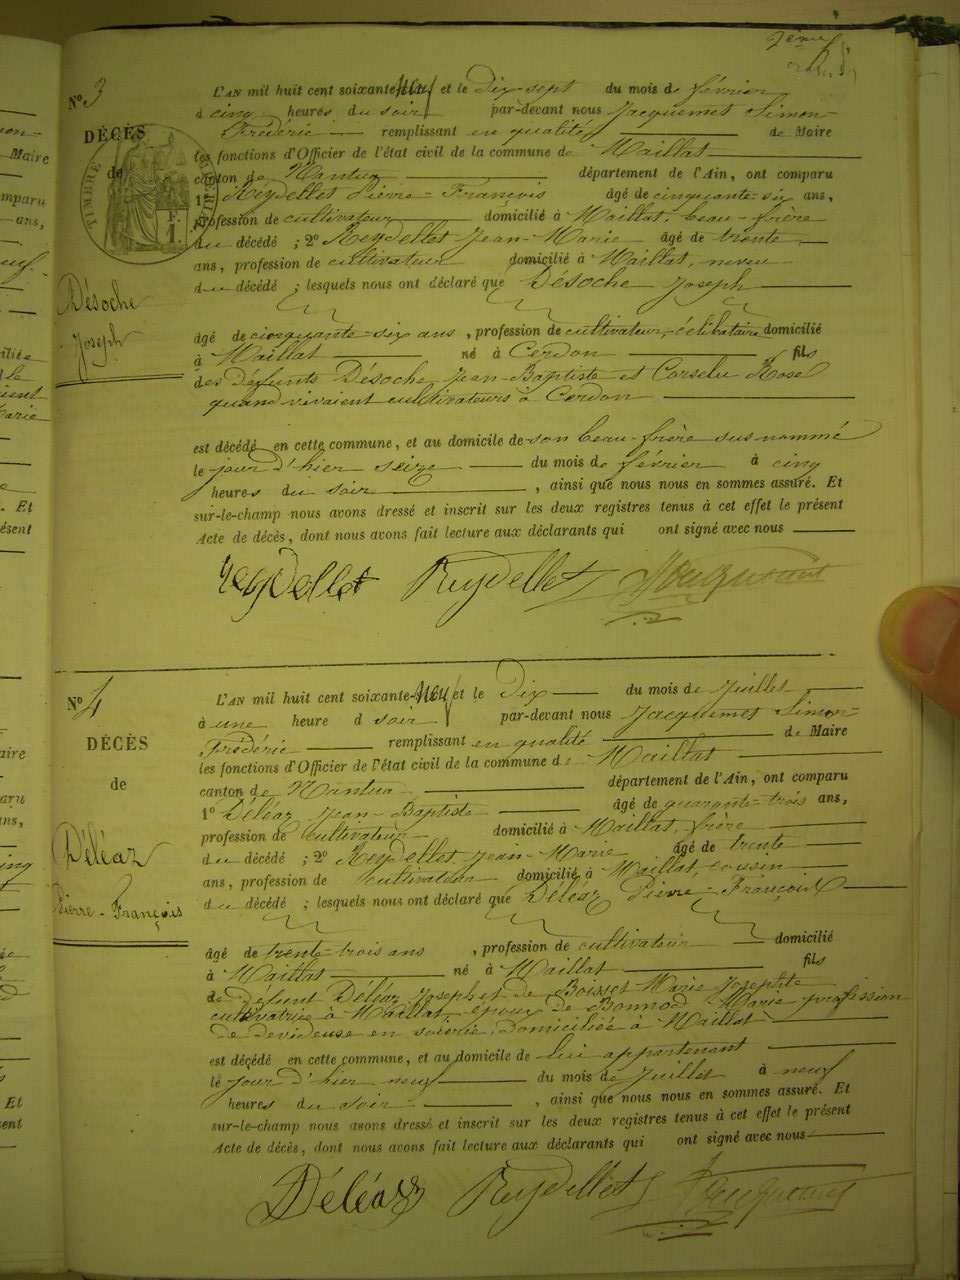 2ème
N° 3
DÉCÈS
de
TIMBRE
Désoche
Joseph
L'AN mil huit cent soixante-neuf et le Dix-sept du mois de février
à cinq heures du soir par-devant nous Jacquemet Simon-
Frédéric remplissant en qualité de Maire
les fonctions d'Officier de l'état civil de la commune de Maillat
canton de Nantua département de l'Ain, ont comparu
1° Reydellet Pierre-François âgé de cinquante-six ans,
profession de cultivateur domicilié à Maillat, beau-frère
du décédé ; 2° Reydellet Jean-Marie âgé de trente
ans, profession de cultivateur domicilié à Maillat, neveu
du décédé ; lesquels nous ont déclaré que Désoche Joseph
âgé de cinquante-six ans, profession de cultivateur, célibataire domicilié
à Maillat né à Cerdon fils
des défunts Désoche Jean-Baptiste et Corselu Rose
quand vivaient cultivateurs à Cerdon
est décédé en cette commune, et au domicile de son beau-frère susnommé
le jour d'hier seize du mois de février à cinq
heures du soir, ainsi que nous nous en sommes assuré. Et
sur-le-champ nous avons dressé et inscrit sur les deux registres tenus à cet effet le présent
Acte de décès, dont nous avons fait lecture aux déclarants qui ont signé avec nous
Reydellet Reydellet Jacquemet
N° 4
DÉCÈS
de
Déléaz
Pierre-François
L'AN mil huit cent soixante-neuf et le Dix du mois de Juillet
à une heure d soir par-devant nous Jacquemet Simon-
Frédéric remplissant en qualité de Maire
les fonctions d'Officier de l'état civil de la commune de Maillat
canton de Nantua département de l'Ain, ont comparu
1° Déléaz Jean-Baptiste âgé de quarante-trois ans,
profession de Cultivateur domicilié à Maillat, frère
du décédé ; 2° Reydellet Jean-Marie âgé de trente
ans, profession de cultivateur domicilié à Maillat, cousin
du décédé ; lesquels nous ont déclaré que Déléaz Pierre-François
âgé de trente-trois ans, profession de cultivateur domicilié
à Maillat né à Maillat fils
de défunt Déléaz Joseph et de Boisset Marie Josephte
cultivatrice à Maillat, époux de Bonnod Marie profession
de devideuse en soierie, domiciliée à Maillat
est décédé en cette commune, et au domicile de lui appartenant
le jour d'hier neuf du mois de Juillet à neuf
heures du soir, ainsi que nous nous en sommes assuré. Et
sur-le-champ nous avons dressé et inscrit sur les deux registres tenus à cet effet le présent
Acte de décès, dont nous avons fait lecture aux déclarants qui ont signé avec nous
Déléaz Reydellet Jacquemet